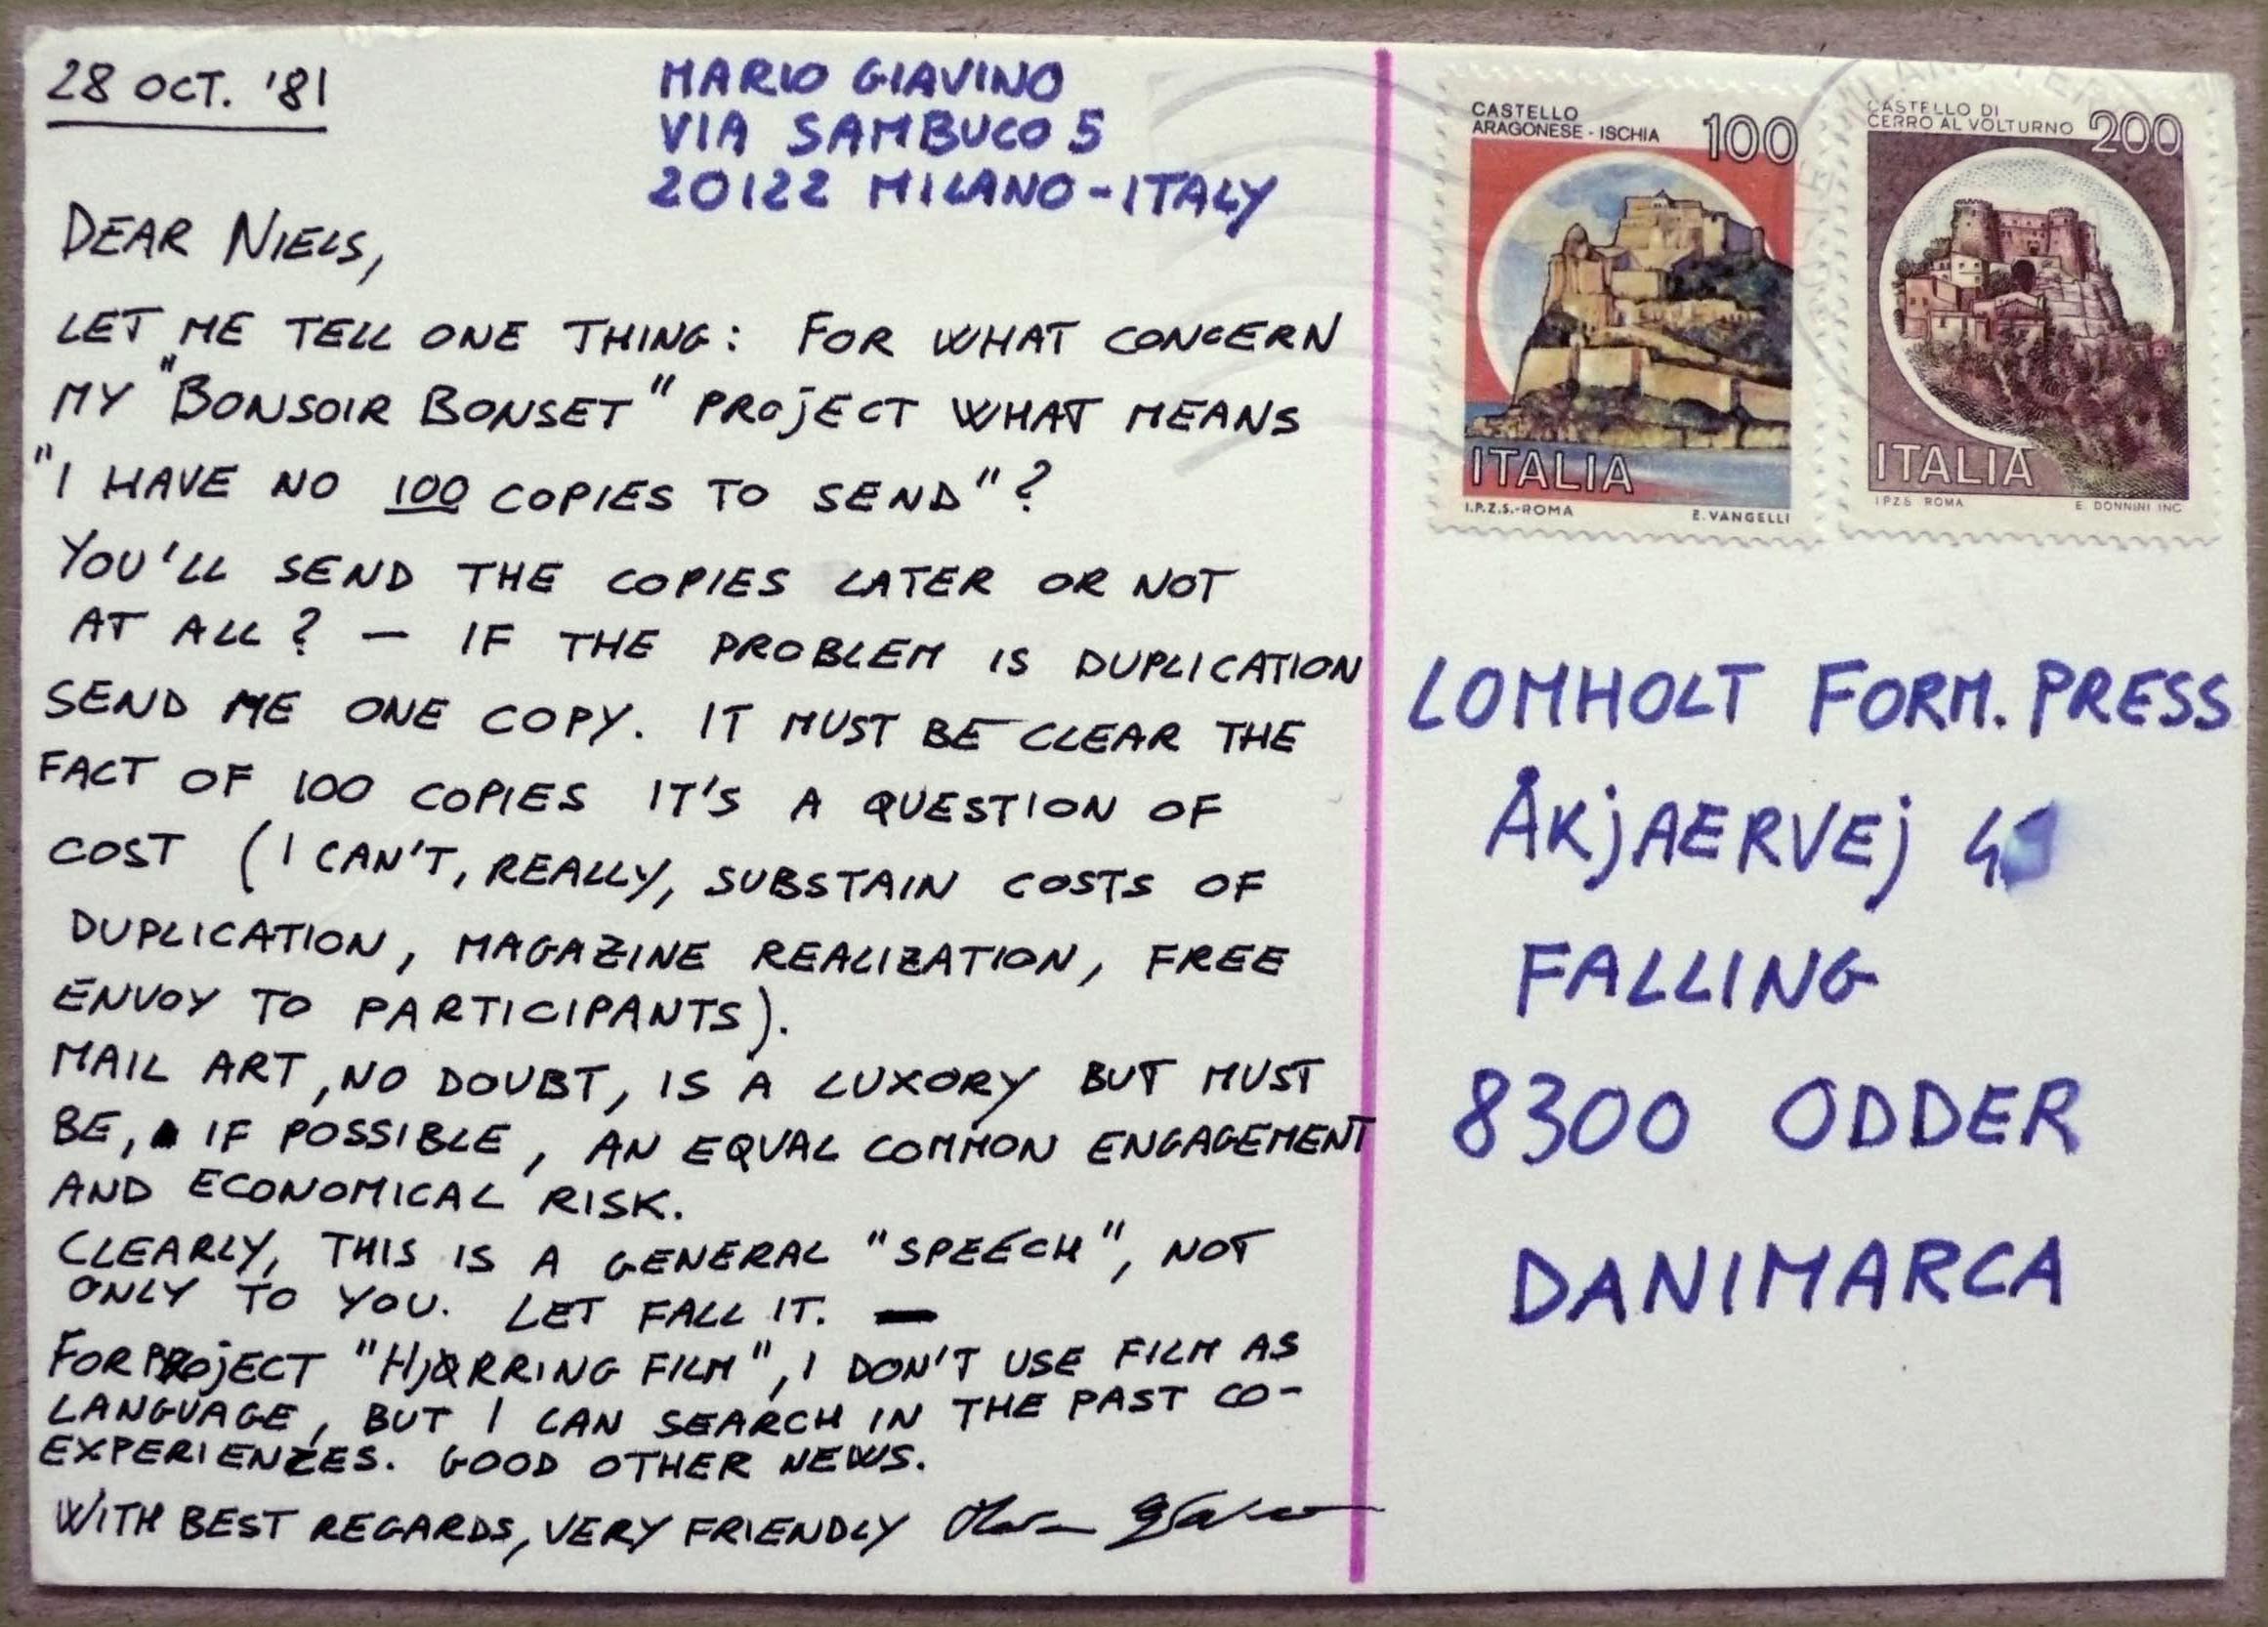 28 OCT. '81
MARIO GIAVINO
VIA SAMBUCO 5
20122 MILANO-ITALY
DEAR NIELS,
LET ME TELL ONE THING: FOR WHAT CONCERN
MY "BONSOIR BONSET" PROJECT WHAT MEANS
"I HAVE NO 100 COPIES TO SEND"?
YOU'LL SEND THE COPIES LATER OR NOT
AT ALL? — IF THE PROBLEM IS DUPLICATION
SEND ME ONE COPY. IT MUST BE CLEAR THE
FACT OF 100 COPIES IT'S A QUESTION OF
COST (I CAN'T, REALLY, SUBSTAIN COSTS OF
DUPLICATION, MAGAZINE REALIZATION, FREE
ENVOY TO PARTICIPANTS).
MAIL ART, NO DOUBT, IS A LUXORY BUT MUST
BE, IF POSSIBLE, AN EQUAL COMMON ENGAGEMENT
AND ECONOMICAL RISK.
CLEARLY, THIS IS A GENERAL "SPEECH", NOT
ONLY TO YOU. LET FALL IT. —
FOR PROJECT "HJØRRING FILM", I DON'T USE FILM AS
LANGUAGE, BUT I CAN SEARCH IN THE PAST CO-
EXPERIENCES. GOOD OTHER NEWS.
WITH BEST REGARDS, VERY FRIENDLY
CASTELLO
ARAGONESE - ISCHIA 100
ITALIA
I.P.Z.S.-ROMA E. VANGELLI
CASTELLO DI
CERRO AL VOLTURNO 200
ITALIA
I.P.Z.S. ROMA E. DONNINI INC
LOMHOLT FORM. PRESS
ÅKJAERVEJ
FALLING
8300 ODDER
DANIMARCA